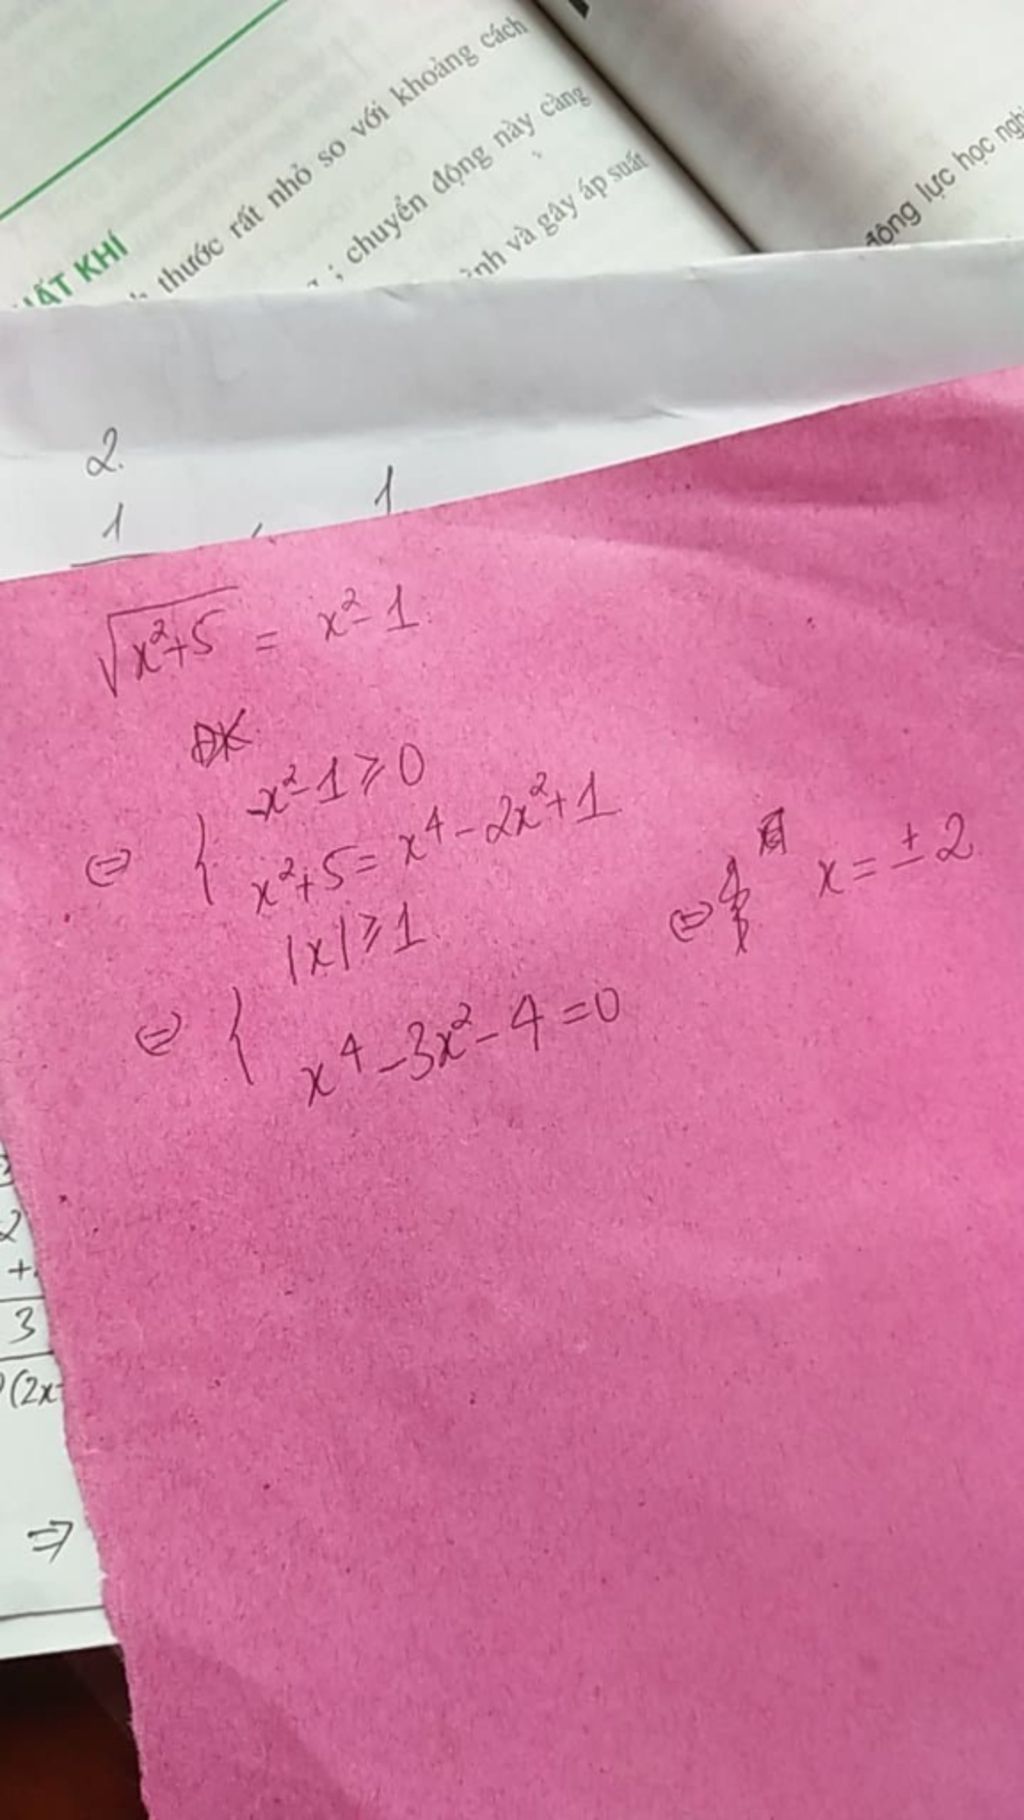 thước rất nhỏ so với khoảng cách
; chuyển động này càng
và gây áp suất
KHÍ
động lực học
2.
1
1
√x²+5 = x²-1
ĐK
x²-1 ≥ 0
⇔ { x²+5 = x⁴-2x²+1
|x| ≥ 1
⇔ { x⁴-3x²-4=0
⇔ x = ±2
2
+
3
(2x
⇒